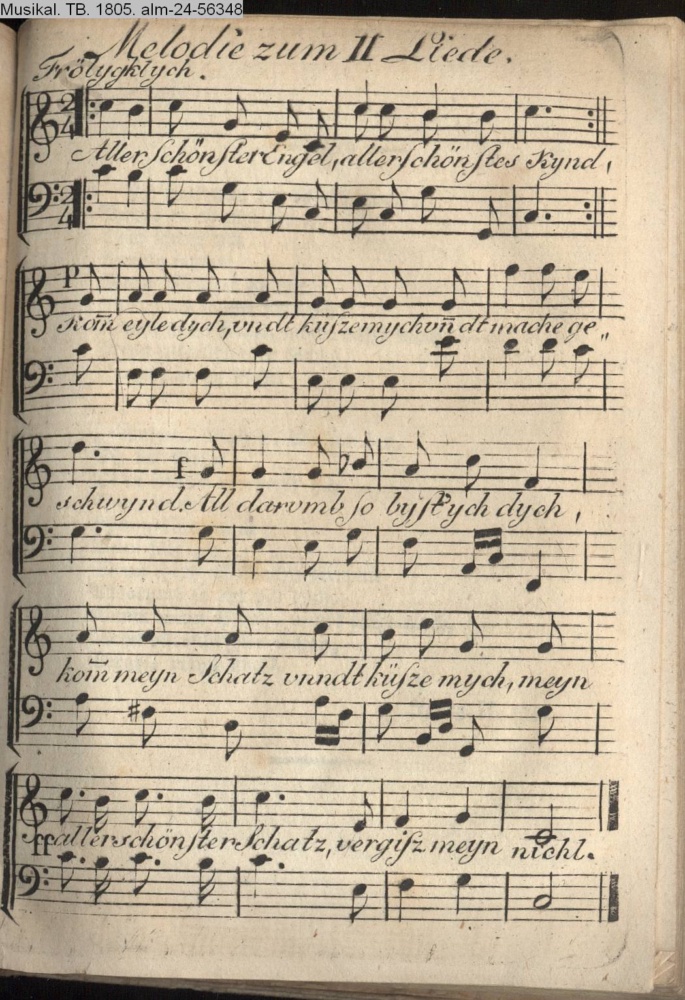 Musikal. TB. 1805. alm-24-56348
Melodie zum II Liede.
Frölygklych.
Allerschönster Engel, allerschönstes Kynd,
p
Kom̅ eyle dych, vndt küsze mych vn̅dt mache ge„
f
schwynd. All darvmb so byst ych dych,
kom̅ meyn Schatz vnndt küsze mych, meyn
ff allerschönster Schatz, vergisz meyn nicht.